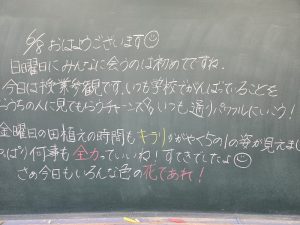 6/8 おはようございます
日曜日にみんなに会うのは初めてですね。
今日は授業参観です。いつも学校でがんばっていることを
おうちの人に見てもらうチャンス!!いつも通りパワフルにいこう!
金曜日の田植えの時間もキラリかがやく5の1の姿が見えました
っぱり何事も全力っていいね!すてきでしたよ
さぁ今日もいろんな色の花であれ!